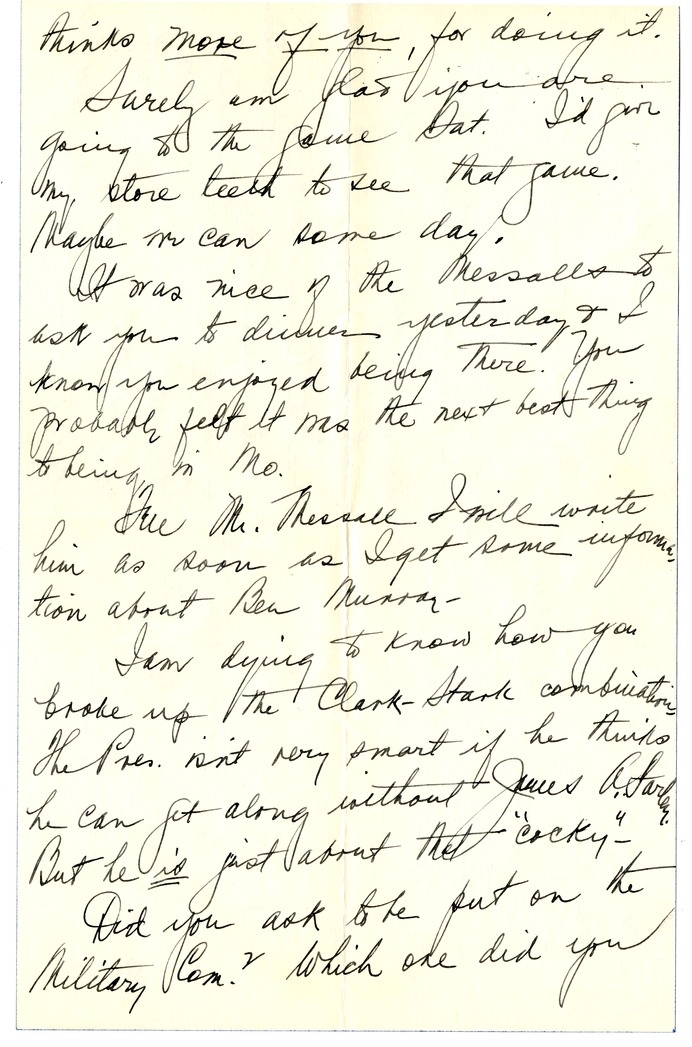 thinks more of you, for doing it.
Surely am glad you are
going to the game Sat. I'd give
my store teeth to see that game.
Maybe we can some day.
It was nice of the Messalls to
ask you to dinner yesterday & I
know you enjoyed being there. You
probably felt it was the next best thing
to being in Mo.
Tell Mr. Messall I will write
him as soon as I get some informa-
tion about Ben Murray-
I am dying to know how you
broke up the Clark-Stark combination.
The Pres. isn't very smart if he thinks
he can get along without James A. Farley.
But he is just about that "cocky"-
Did you ask to be put on the
Military Com.? Which one did you